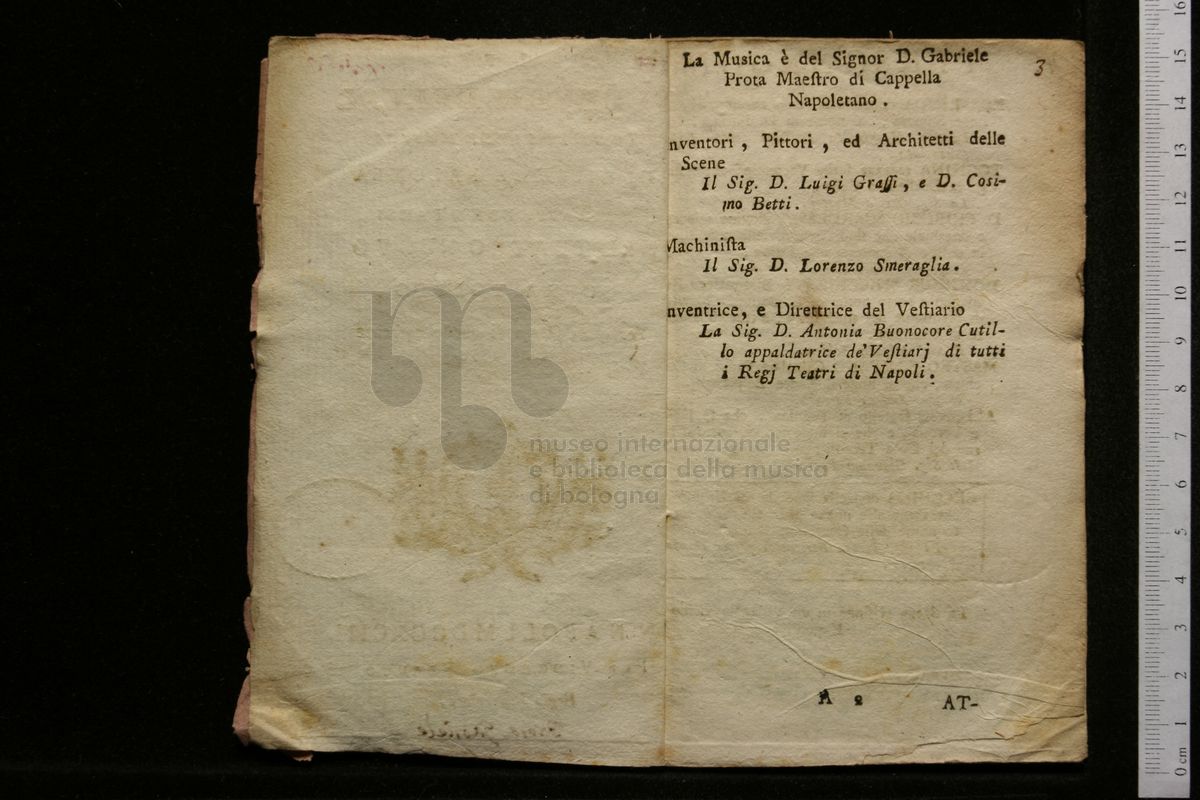 La Musica è del Signor D. Gabriele
3
Prota Maeſtro di Cappella
Napoletano .
nventori , Pittori , ed Architetti delle
Scene
Il Sig. D. Luigi Graſſi , e D. Coſi-
mo Betti .
Machiniſta
Il Sig. D. Lorenzo Smeraglia .
nventrice, e Direttrice del Veſtiario
La Sig. D. Antonia Buonocore Cutil-
lo appaldatrice de' Veſtiarj di tutti
i Regj Teatri di Napoli .
A 2 AT-
museo internazionale
e biblioteca della musica
di bologna
0 cm 1 2 3 4 5 6 7 8 9 10 11 12 13 14 15 16